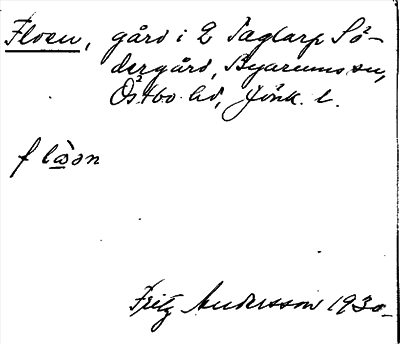 Floen, gård i 2 Taglarp Sö-
dergård, Byarums sn,
Östbo hd, Jönk. l.
flòən
Fritz Andersson 1930